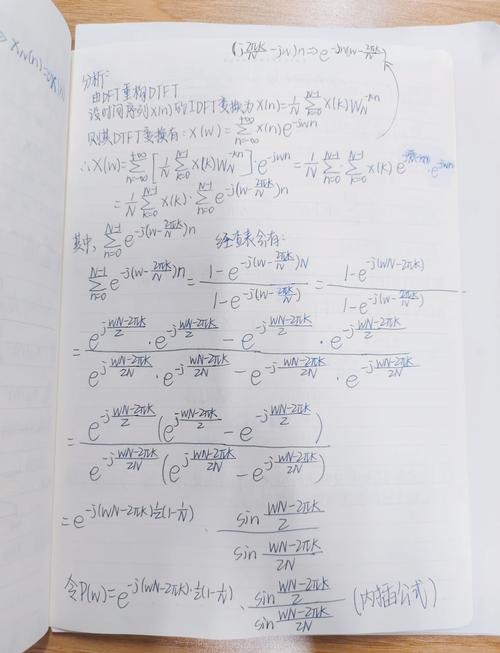 (j2πk/N - jw)n ⇒ e^-jn(w-2πk/N)
分析:
由DFT重构DTFT
设时间序列X(n)的IDFT变换为X(n)=1/N ∑_{k=0}^{N-1} X(k)W_N^-kn
则其DTFT变换有: X(w)=∑_{n=-∞}^{+∞} x(n)e^-jwn
∴X(w)=∑_{n=-∞}^{+∞}[1/N ∑_{k=0}^{N-1} X(k)W_N^-kn]·e^-jwn = 1/N ∑_{n=0}^{N-1} ∑_{k=0}^{N-1} X(k) e · e^-jwn
= 1/N ∑_{k=0}^{N-1} X(k)·∑_{n=0}^{N-1} e^-j(w-2πk/N)n
其中, ∑_{n=0}^{N-1} e^-j(w-2πk/N)n 经查表会有:
∑_{n=0}^{N-1} e^-j(w-2πk/N)n = (1-e^-j(w-2πk/N)N)/(1-e^-j(w-2πk/N)) = (1-e^-j(wN-2πk))/(1-e^-j(w-2πk/N))
= (e^j(wN-2πk)/2 · e^-j(wN-2πk)/2 - e^-j(wN-2πk)/2 · e^-j(wN-2πk)/2)/(e^j(wN-2πk)/2N · e^-j(wN-2πk)/2N - e^-j(wN-2πk)/2N · e^-j(wN-2πk)/2N)
= (e^-j(wN-2πk)/2 (e^j(wN-2πk)/2 - e^-j(wN-2πk)/2))/(e^-j(wN-2πk)/2N (e^j(wN-2πk)/2N - e^-j(wN-2πk)/2N))
= e^-j(wN-2πk)½(1-1/N) · (sin (wN-2πk)/2)/(sin (wN-2πk)/2N)
令P(w)=e^-j(wN-2πk)·½(1-1/N) · (sin (wN-2πk)/2)/(sin (wN-2πk)/2N) (内插公式)